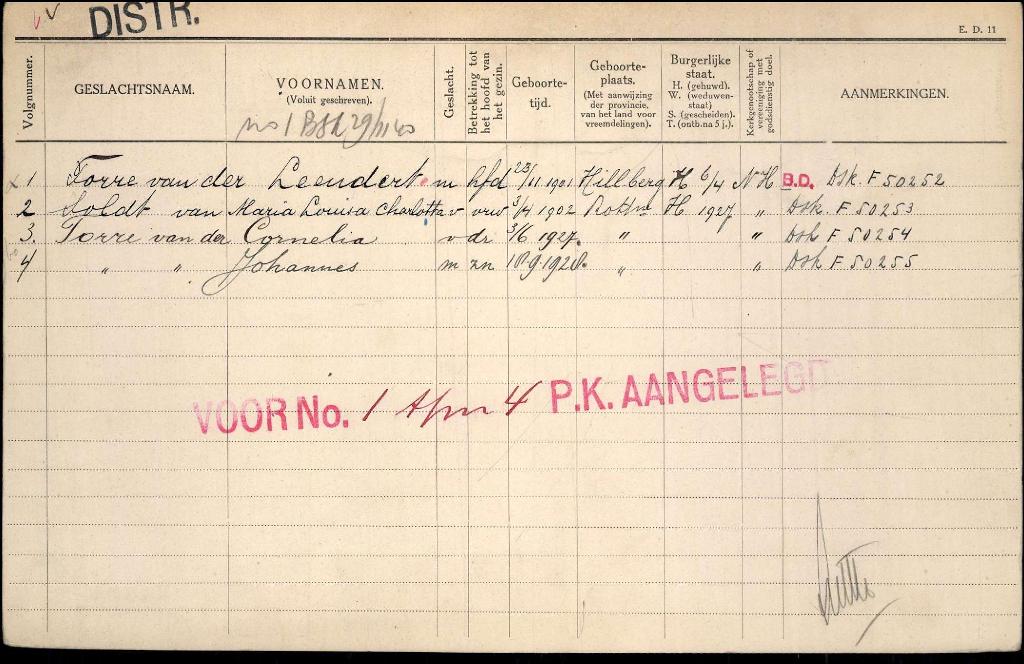 DISTR.
E. D. 11
Volgnummer. GESLACHTSNAAM. VOORNAMEN. (Voluit geschreven). Geslacht. Betrekking tot het hoofd van het gezin. Geboorte-tijd. Geboorte-plaats. (Met aanwijzing der provincie, van het land voor vreemdelingen). Burgerlijke staat. H. (gehuwd). W. (weduwen-staat) S. (gescheiden). T. (ontb. na 5 j.). Kerkgenootschap of vereeniging met godsdienstig doel. AANMERKINGEN.
no 1 29/11 40
x 1 Torre van der Leendert m hfd 23/11 1901 Hillberg H 6/4 NH B.D. Dsk. F 50252
2 Soldt van Maria Louisa Charlotta v vrw 3/4 1902 Rottm H 1927 " Dsk. F 50253
3. Torre van der Cornelia v dr 3/6 1927. " " Dsk F 50254
4 " " Johannes m zn 18.9.1928. " " Dsk F 50255
VOOR No. 1 t/m 4 P.K. AANGELEGD